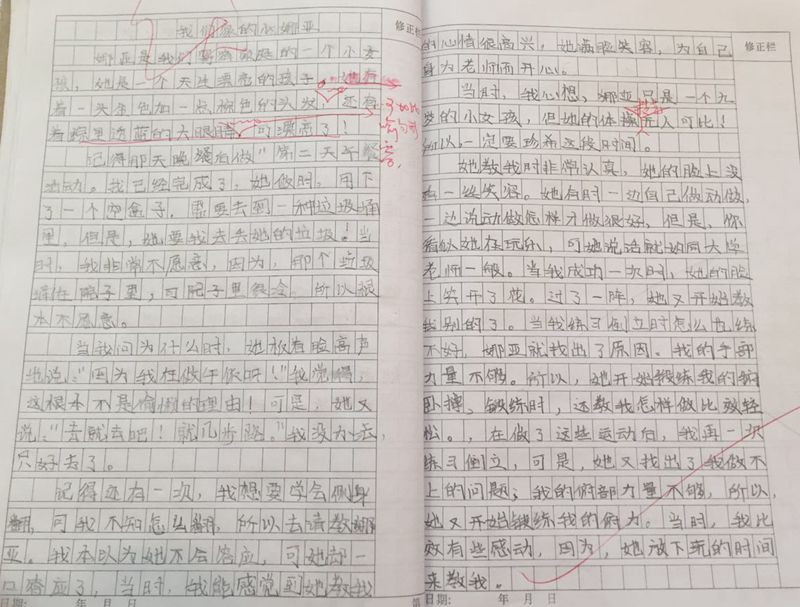 我们家的小娜亚
修正栏
娜亚是我们寄宿家庭的一个小女
孩，她是一个天生漂亮的孩子
着一头金色加一点棕色的头发，还有
着绿里透蓝的大眼睛，可漂亮了！
记得那天晚
我已经完成了，她做时，用下
了一个空盒子，需要丢到一种垃圾桶
里，但是，她要我去丢她的垃圾！当
时，我非常不愿意，因为，那个垃圾
桶在院子里，可院子里很冷，所以根
本不愿意。
当我问为什么时，她板着脸高声
地说："因为我在做午饭呀！"我觉得，
这根本不是偷懒的理由！可是，她又
说："去就去吧！就几步路。"我没办法，
只好去了。
记得还有一次，我想要学会侧身
翻，可我不知怎么翻，所以去请教娜
亚。我本以为她不会答应，可她却一
口答应了，当时，我能感觉到她教我
日期： 年 月 日
修正栏
的心情很高兴，她满脸笑容，为自己
身为老师而开心。
当时，我心想，娜亚只是一个九
岁的小女孩，但她的体操无人可比！
所以一定要珍希这段时间。
她教我时非常认真，她的脸上没
有一丝笑容。她有时一边自己做动做，
一边说动做怎样才做很好，但是，你
看似她在玩似，可她说话就如同大学
老师一般。当我成功一次时，她的脸
上笑开了花。过了一阵，她又开始教
我别的了。当我练习倒立时怎么也练
不好，娜亚就找出了原因。我的手部
力量不够。所以，她开始锻练我的俯
卧撑，锻练时，还教我怎样做比较轻
松。，在做了这些运动后，我再一次
练习倒立，可是，她又找出了我做不
上的问题；我的俯部力量不够，所以，
她又开始锻练我的俯力。当时，我比
较有些感动，因为，她放下玩的时间
来教我。
日期： 年 月 日